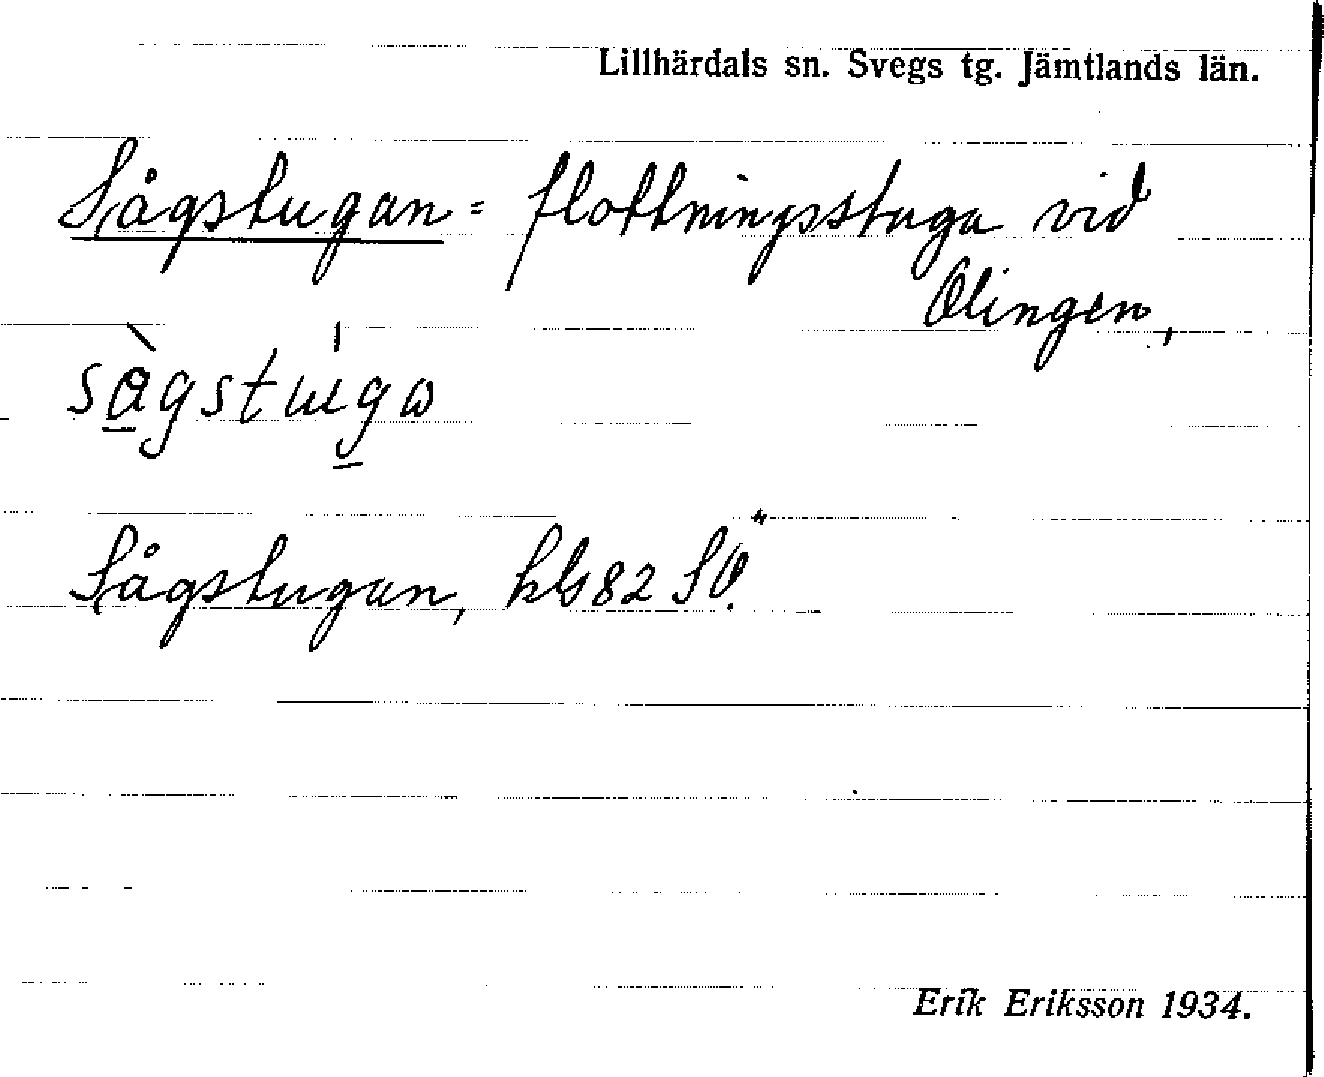 Lillhärdals sn. Svegs tg. Jämtlands län.
Sågstugan = flottningsstuga vid
Olingen,
Sågstugan, kbl 82 SV.
Erik Eriksson 1934.